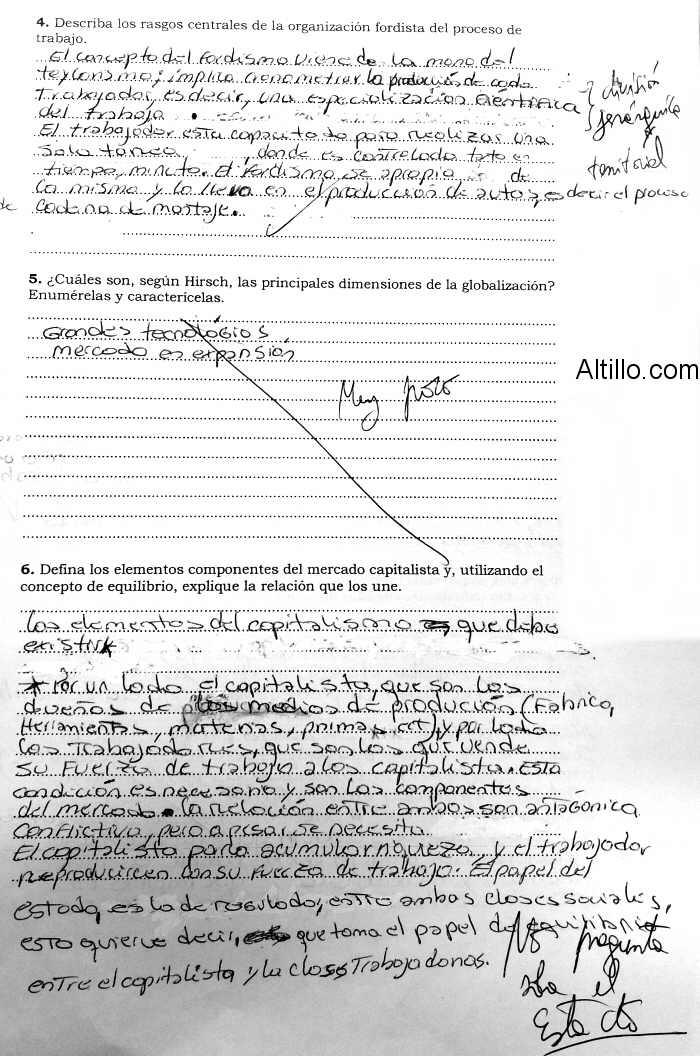 4. Describa los rasgos centrales de la organización fordista del proceso de
trabajo.
El concepto del fordismo viene de la mano del
teylorismo, implica cronometrar la producción de cada
Trabajador, es decir, una especialización científica
del trabajo.
El trabajador esta capacitado para realizar una
sola tarea, donde es controlado todo en
tiempo, minuto. El fordismo se apropia de
la misma y lo lleva en el producción de autos, es decir el proceso
de cadena de montaje.
división
jerárquica
territorial
5. ¿Cuáles son, según Hirsch, las principales dimensiones de la globalización?
Enumérelas y caracterícelas.
Grandes tecnológios
mercado en expansión
Muy pobre
Altillo.com
6. Defina los elementos componentes del mercado capitalista y, utilizando el
concepto de equilibrio, explique la relación que los une.
Los elementos del capitalismo es que debe
existir
* Por un lado el capitalista, que son los
dueños de los medios de producción (Fabrica,
Herramientas, materias, primas, cct), y por lado
los Trabajadores, que son los que vende
su Fuerza de trabajo a los capitalista. Esta
condición es necesario y son los componentes
del mercado. la relación entre ambos son antagónica
conflictiva, pero a pesar se necesita
El capitalista para acumular riqueza y el trabajador
reproducirce con su Fuerza de trabajo. El papel del
estado, es la de regulado, entre ambos clases sociales,
esto quierve decir, que toma el papel de equilibrio
entre el capitalista y la class Trabajadoras.
No pregunta
x la el
Estado